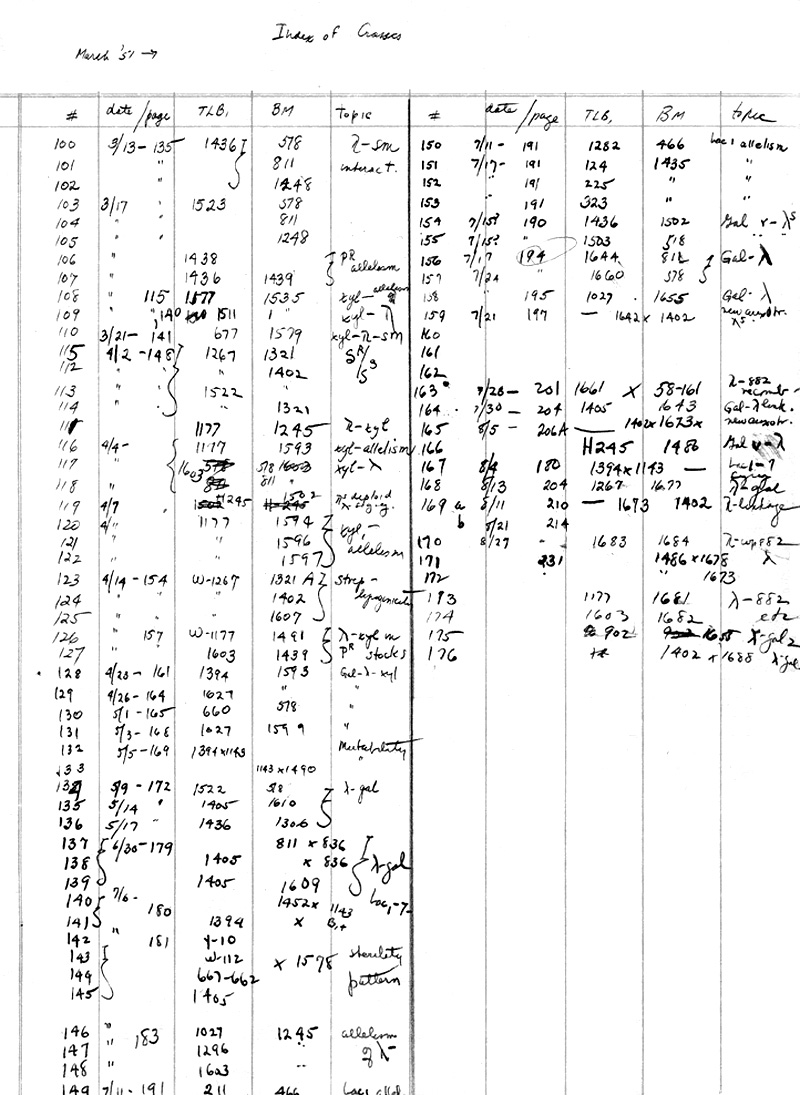 Index of Crosses
March '51 →
# date/page TLB, BM topic
100 3/13-135 1436 578 λ-sm
101 " 811 interact.
102 " 1248
103 3/17 " 1523 578
104 " " 811
105 " " 1248
106 " 1438 PR allelism
107 " 1436 1439
108 " 115 1577 1535 xyl-allelism
109 " 140 1511 " xyl-λ
110 3/21-141 677 1579 xyl-λ-sm
115 4/2-148 1267 1321 SR/S
112 " " 1402
113 " " 1522 "
114 " " " 1321
1177 1245 λ-xyl
116 4/4- 1177 1593 xyl-allelism
117 " 1603 578 xyl-λ
118 " 811 "
119 4/7 H245 1502 diploid
120 4/" 1177 1594 xyl,-
121 " " 1596 allelism
122 " " 1597
123 4/14-154 W-1267 1321 A Strep-
124 " " " 1402
125 " " " 1607
126 " 157 W-1177 1491 λ-xyl m
127 " 1603 1439 PR stocks
128 4/23-161 1394 1593 Gal-λ-xyl
129 4/26-164 1027 " "
130 5/1-165 660 578 "
131 5/3-168 1027 1599 "
132 5/5-169 1394x1143 Mutability
133 1143x1490 "
134 5/9-172 1522 518 λ-gal
135 5/14 " 1405 1610
136 5/17 " 1436 1306
137 6/30-179 811 x 836
138 1405 x 836 λ-gal
139 1405 1609
140 7/6- 1452x 1143 Lac1-7-
141 " 180 1394 x B1+
142 " 181 Y-10
143 W-112 x 1578 sterility
144 667-662 pattern
145 1405
146 " 183 1027 1245 allelism
147 " 1296 " of λ-
148 " 1603 "
149 7/11-191 211 466 Lac1 allel.
# date/page TLB, BM topic
150 7/11-191 1282 466 Lac1 allelism
151 7/17-191 124 1435 "
152 " 191 225 " "
153 191 323 "
154 7/15? 190 1436 1502 Gal v-λs
155 7/15? " 1503 518 "
156 7/17 194 1644 811 Gal-λ
157 7/24 " 1660 578
158 " 195 1027 1655 Gal-λ
159 7/21 197 — 1642x1402 new auxotr. λs
160
161
162
163 7/28-201 1661 X 58-161 λ-882 recomb-
164 7/30-204 1405 1643 Gal-λ link.
165 8/5-206A — 1402x1673x new auxotr.
166 H245 1486 Gal
167 8/4 180 1394x1143 — Lac1-7
168 8/13 204 1267 1677
169 a 8/11 210 — 1673 1402 λ-linkage
b 8/21 214
170 8/27 1683 1684
171 231 1486x1678 λ
172 " 1673
173 1177 1681 λ-882
174 1603 1682 etc
175 902 1655 λ-gal2
176 1402x1688 λ-gal